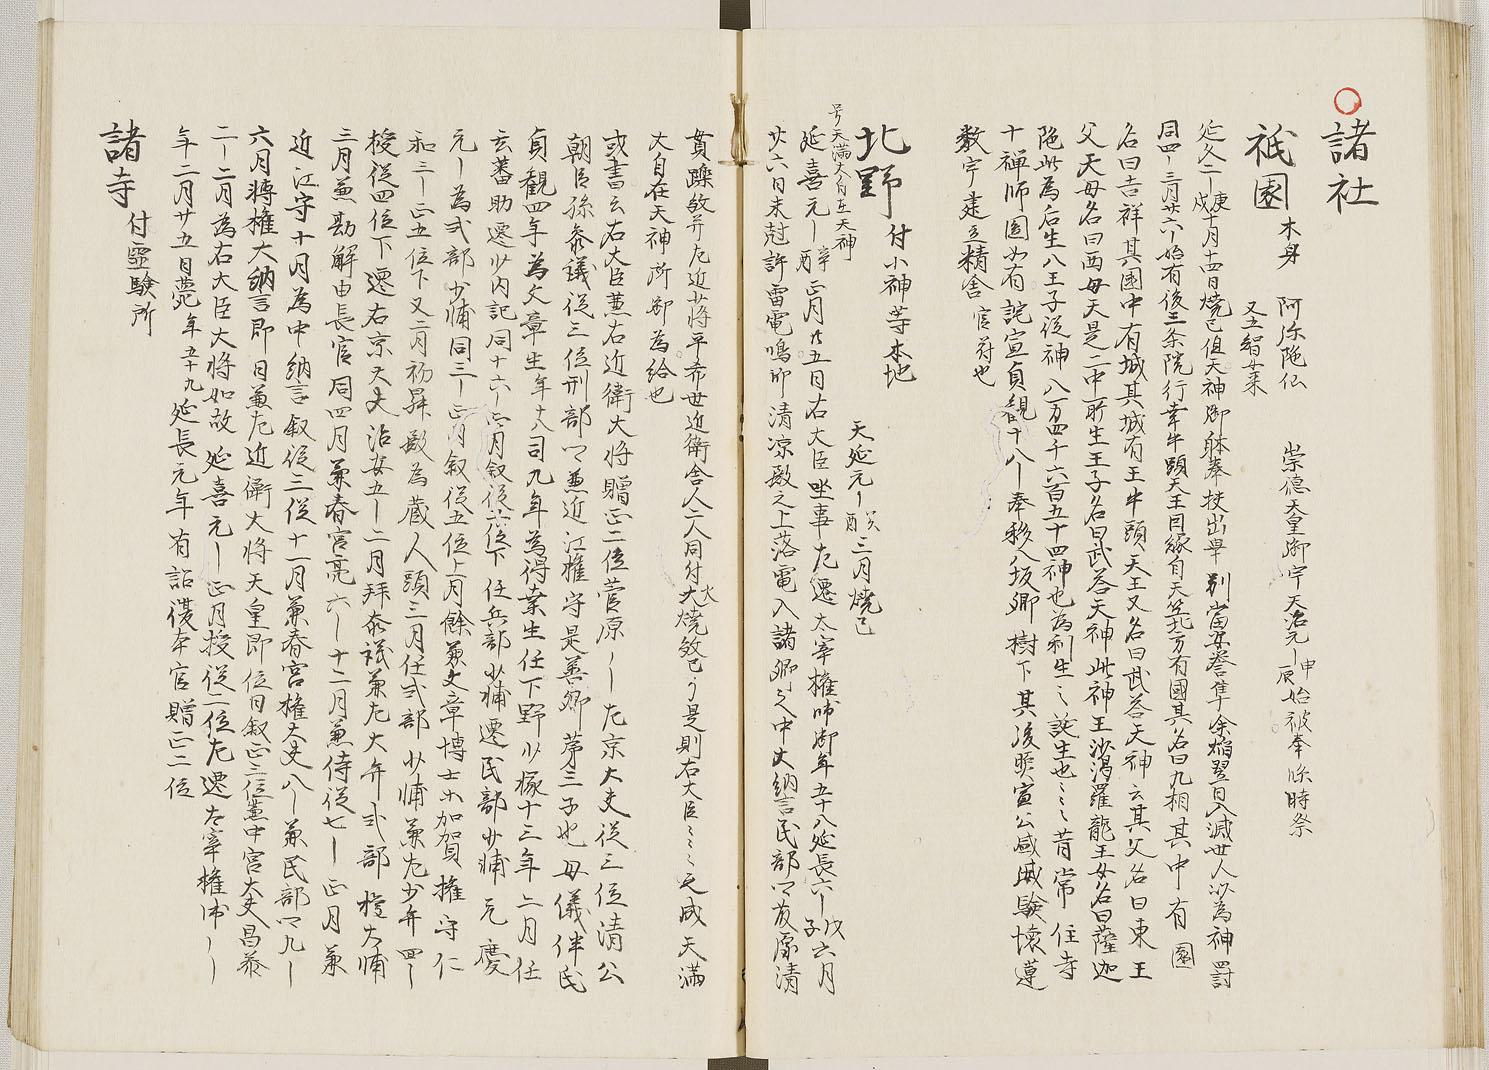 諸社
祇園 本身 阿弥陀仏 崇德天皇御宇天治元ー申辰始被奉臨時祭
又五智如来
延久二ー庚戌十月十四日焼已但天神御躰奉扶出畢別当安誉隼余焔翌日入滅世人以為神罰
同四ー三月廿六ー始有後三条院行幸牛頭天王因縁自天竺北方有國其名曰九相其中有園
名曰吉祥其園中有城其城有王牛頭天王又名曰武荅天神云其父名曰東王
父天母名曰西母天是二中所生王子名曰武荅天神此神王沙渇羅龍王女名曰薩迦
陁此為后生八王子従神八万四千六百五十四神也為利生〻誕生也〻〻昔常住寺
十禅師圓如有託宣貞観十八ー奉移八坂郷樹下其後照宣公感威驗懐運
数宇建立精舎 官符也
北野 付小神等本地 天延元ー癸酉三月焼已
号天満大自在天神
延喜元ー辛酉正月廿五日右大臣坐事左遷太宰権帥御年五十八延長六ー戊子六月
廿六日未尅許雷電鳴即清凉殿之上落電入諸卿之中大納言民部卿藤原清
貫蹂敓并左近少蒋平希世近衛舎人二人同付火焼敓已了是則右大臣〻〻〻之成天満
大自在天神所都為給也
或書云右大臣兼右近衛大将贈正二位菅原ーー左京大夫従三位清公
朝臣孫叅議従三位刑部卿兼近江権守是善卿第三子也母儀伴氏
貞観四年為文章生年十八司九年為得業生任下野少掾十三年二月任
玄蕃助遷少内記同十六ー正月叙従六位下任兵部少輔遷民部少輔元慶
元ー為式部少輔同三ー正月叙従五位上月餘兼文章博士加賀権守仁
和三ー正五位下又二月初昇殿為蔵人頭三月任式部少輔兼左少弁四ー
授従四位下遷右京大夫治安五ー二月拜叅議兼左大弁式部権大輔
三月兼勘解由長官同四月兼春宮亮六ー十二月兼侍従七ー正月兼
近江守十月為中納言叙従三位十一月兼春宮権大夫八ー兼民部卿九ー
六月轉権大納言即日兼左近衛大将天皇即位日叙正三位兼中宮大夫昌泰
二ー二月為右大臣大将如故延喜元ー正月授従二位左遷太宰権帥ーー
年二月廿五日薨年五十九延長元年有詔復本官贈正二位
諸寺 付霊驗所